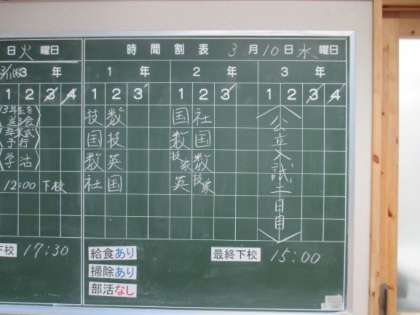 日火曜日 時間割表 3月10日水曜日
3年 1年 2年 3年
1 2 3 4 1 2 3 1 2 3 1 2 3 4
技 数 国 社
国 技 数 国
数 英 技家 数
学活 社 国 英 技家
公立入試 1日目
12:00下校
下校 17:30 給食あり 最終下校 15:00
掃除あり
部活なし